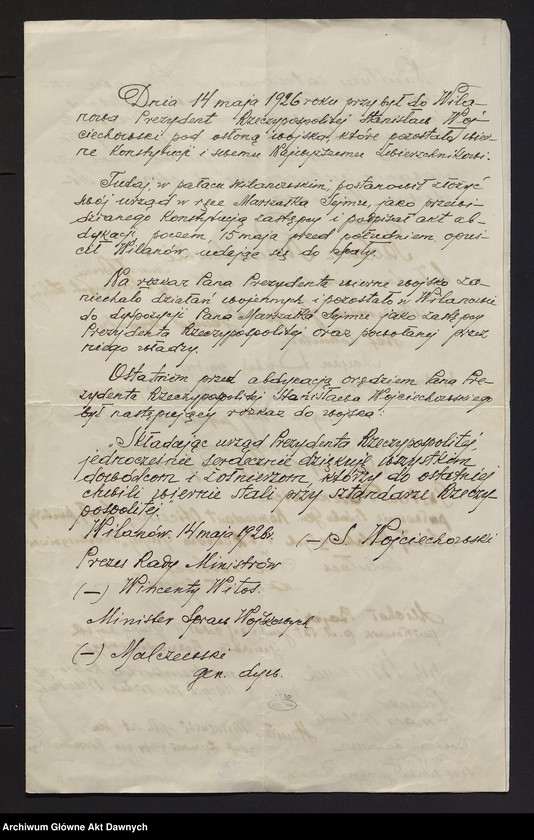 Dnia 14 maja 1926 roku przybył do Wila-
nowa Prezydent Rzeczypospolitej Stanisław Woj-
ciechowski pod osłoną wojska, które pozostało wier-
ne Konstytucji i swemu Najwyższemu Zwierzchnikowi.
Tutaj, w pałacu wilanowskim, postanowił złożyć
swój urząd w ręce Marszałka Sejmu, jako przewi-
dzianego Konstytucją zastępcy i podpisał akt ab-
dykacji, poczem, 15 maja przed południem, opuś-
cił Wilanów, udając się do Spały.
Na rozkaz Pana Prezydenta wierne wojsko za-
niechało działań wojennych i pozostało w Wilanowie
do dyspozycji Pana Marszałka Sejmu jako zastępcy
Prezydenta Rzeczypospolitej oraz powołanej przez
niego władzy.
Ostatniem przed abdykacją orędziem Pana Pre-
zydenta Rzeczypospolitej Stanisława Wojciechowskiego
był następujący rozkaz do wojska:
"Składając urząd Prezydenta Rzeczypospolitej,
jednocześnie serdecznie dziękuję wszystkim
dowódcom i żołnierzom, którzy do ostatniej
chwili wiernie stali przy sztandarze Rzeczy-
pospolitej.
Wilanów. 14 maja 1926r. (-) S. Wojciechowski
Prezes Rady Ministrów
(-) Wincenty Witos.
Minister Spraw Wojskowych
(-) Malczewski
gen. dyw.
Archiwum Główne Akt Dawnych